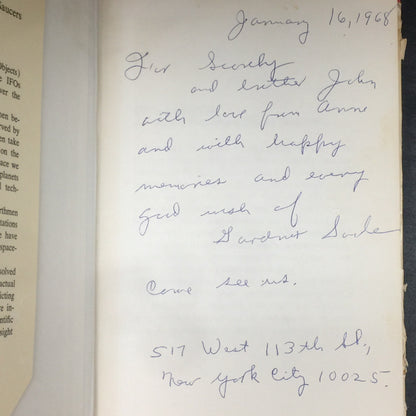 Saucers
bjects)
IFOs
ver the
en be-
rved by
en take
on the
ace we
planets
d tech-
rthmen
tations
e have
space-
solved
actual
icting
re in-
ntific
sight
January 16, 1968
For
and brother John
with love from Anne
and with happy
memories and every
good wish of
Gardner Soule
Come see us.
517 West 113th St.,
New York City 10025.